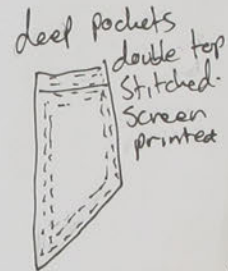 deep pockets
double top
stitched.
screen
printed